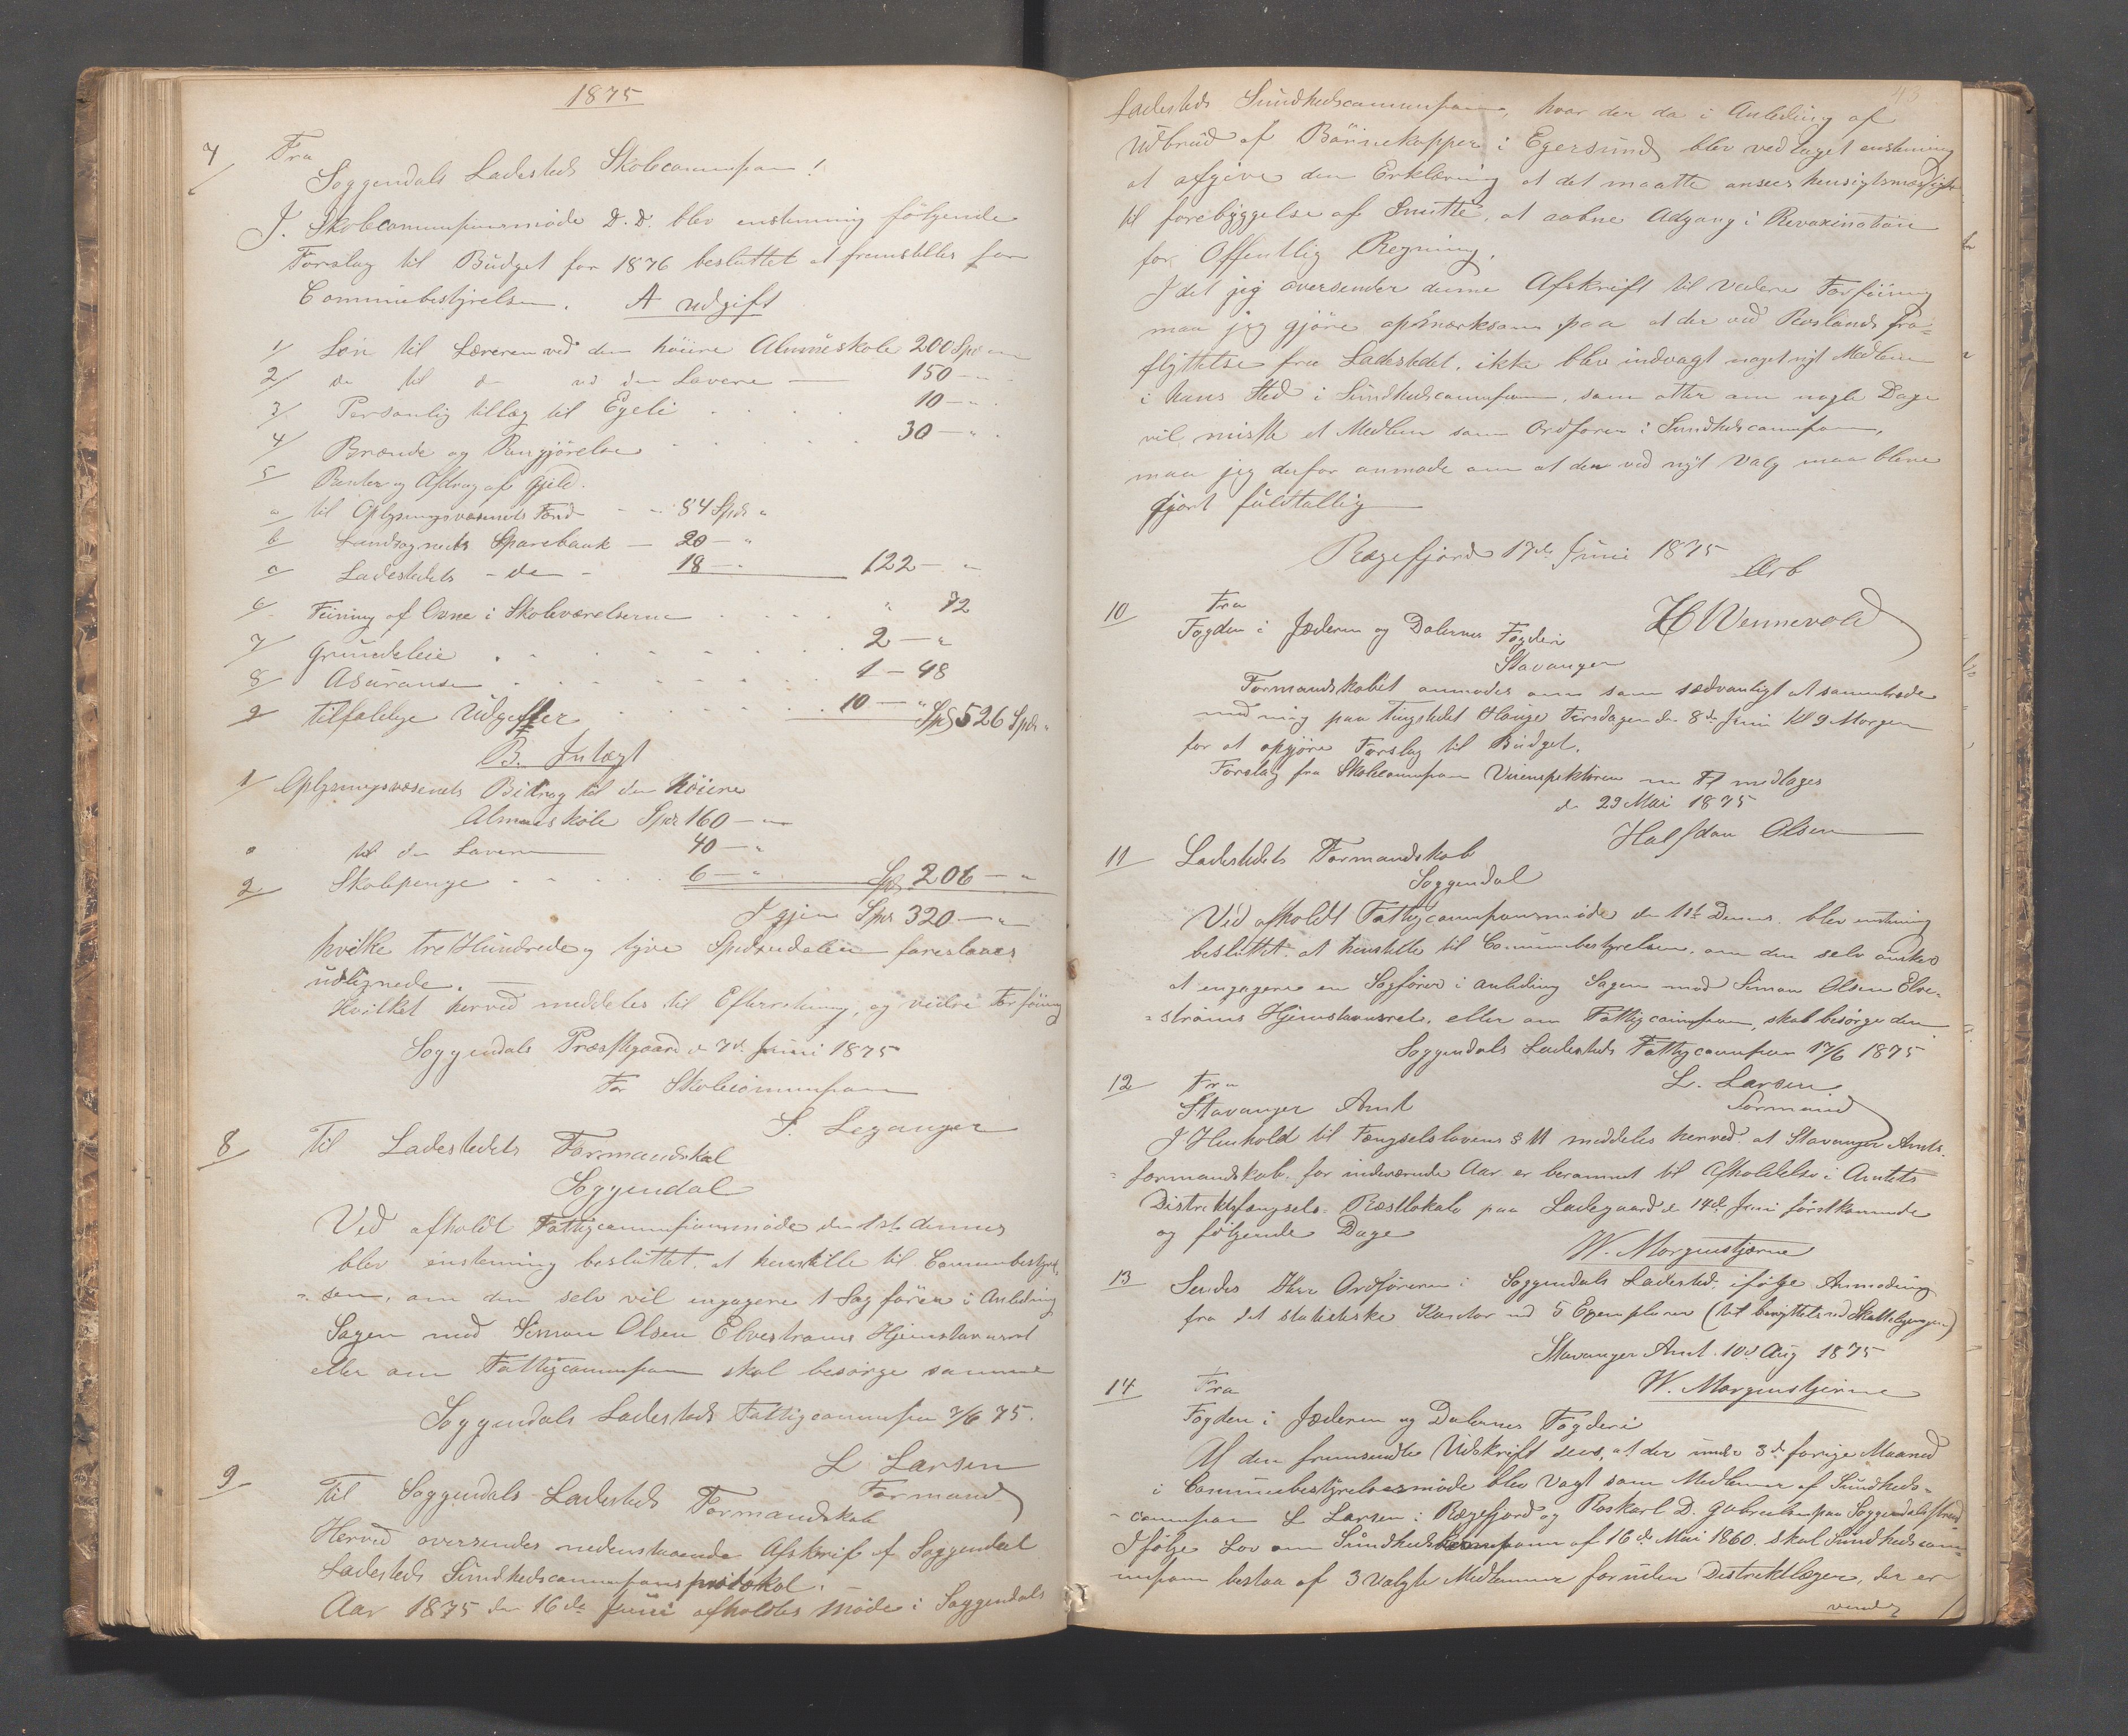 1875
7/ Fra
Soggendals Ladesteds Skolecommission!
I Skolecommissionsmøde D.D. blev enstemmig følgende
Forslag til Budget for 1876 besluttet at fremstilles for
Communebestyrelsen. A udgift
1/ Løn til Læreren ved den høiere Almueskole 200 Spd
2/ do til do ved den Lavere — 150 — "
3/ Personlig tillæg til Egeli . . . . 10 — "
4/ Brænde og Rengjørelse . . . . 30 — "
5/ Renter og Afdrag af Gjeld.
a til Oplysningsvæsenets Fond — 84 Spd "
b Landsognets Sparebank — 20 — "
c Ladestedets — do — 18 — " 122 — "
6/ Feining af Ovne i Skoleværelserne . . . " 72
7/ Grundeleie . . . . 2 — "
8/ Asurance . . . . 1 — 48
9/ Tilfældige Udgifter . . . . 10 — " Spd 526 Spd "
B. Indtægt
1/ Oplysningsvæsenets Bidrag til den høiere
Almueskole Spd 160 — "
" til den Lavere 40 — "
2/ Skolepenge . . . . 6 — " Spd 206 — "
Igjen Spd 320 — "
hvilke tre Hundrede og tyve Speciedaler foreslaaes
udlignede.
Hvilket herved meddeles til Efterretning, og videre Forføining
Soggendals Præstegaard d 7de Juni 1875
For Skolecommission
S. Leganger
8/ Til Ladestedets Formandskab
Soggendal
Ved afholdt Fattigcommissionsmøde den 1ste dennes
blev enstemmig besluttet, at henstille til Communebestyrel-
-sen, om den selv vil engagere 1 Sagfører i Anledning
Sagen med Simon Olsen Elvestrøms Hjemstavnsret
eller om Fattigcommission skal besørge samme
Soggendals Ladesteds Fattigcommission 7/6 75.
L Larsen
Formand
9/ Til Soggendals Ladesteds Formandskab
Herved oversendes nedenstaaende Afskrift af Soggendal
Ladesteds Sundhedscommissionsprotokol.
Aar 1875 den 16de Juni afholdtes Møde i Soggendals
Ladesteds Sundhedscommission, hvor der da i Anledning af
Udbrud af Børnekopper i Egersund blev vedtaget enstemmig
at afgive den Erklæring at det maatte ansees hensigtsmæssigt
til forebyggelse af Smitte, at aabne Adgang i Revaxination
for Offentlig Regning.
I det jeg oversender denne Afskrift til videre Forføining
maa jeg gjøre opmærksom paa at der ved Roslands fra-
flyttelse fra Ladestedet, ikke blev indvagt noget nyt Medlem
i hans Sted i Sundhedscommission, som atter om nogle Dage
vil miste et Medlem som Ordfører i Sundhedscommission,
maa jeg derfor anmode om at den ved nyt Valg maa blive
gjort fuldtallig
Rægefjord 17de Juni 1875
Ærb
H Wennevold
10 Fra
Fogden i Jæderen og Dalernes Fogderi
Stavanger
Formandskabet anmodes om som sædvanligt at sammentræde
med mig paa Tingstedet Hauge Tirsdagen den 8de Juni Kl 9 Morgen
for at opgjøre Forslag til Budget.
Forslag fra Skolecommission Veiinspektøren m Fl medtages
d 29 Mai 1875
Halfdan Olsen
11 Ladestedets Formandskab
Soggendal
Ved afholdt Fattigcommissionsmøde den 1ste Dennes. blev enstemmig
besluttet. at henstille til Communebestyrelsen, om den selv ønsker
at engagere en Sagfører i anledning Sagen mod Simon Olsen Elve-
-strøms Hjemstavnsret, eller om Fattigcommission, skal besørge den
Soggendals Ladesteds Fattigcommission 17/6 1875
L. Larsen
Formand
12 Fra
Stavanger Amt
I Henhold til Fængselslovens § 11 meddeles herved at Stavanger Amts-
-formandskab, for indeværende Aar er berammet til Afholdelse i Amtets
Distriktsfængsels Retslokale paa Ladegaard d 14de Juni førstkommende
og følgende Dage
W. Morgenstjerne
13 Sendes Herr Ordføreren i Soggendals Ladested. ifølge Anmodning
fra det statistiske Kontor ved 5 Exemplarer (til benyttelse ved Skattelign­ingen)
Stavanger Amt. 10d Aug 1875
W. Morgenstjerne
14 Fra
Fogden i Jæderen og Dalernes Fogderi
Af den fremsendte Udskrift sees, at der under 3de forrige Maaned
i Communebestyrelsesmøde blev Valgt som Medlemmer af Sundheds-
-commission L Larsen i Rægefjord og Roskarl D. Gabrielsen paa Soggendalsstrand
Ifølge Lov om Sundhedscommissioner af 16de Mai 1860. skal Sundhedscom-
mission bestaa af 3 valgte Medlemmer foruden Distriktlægen, der er
vende